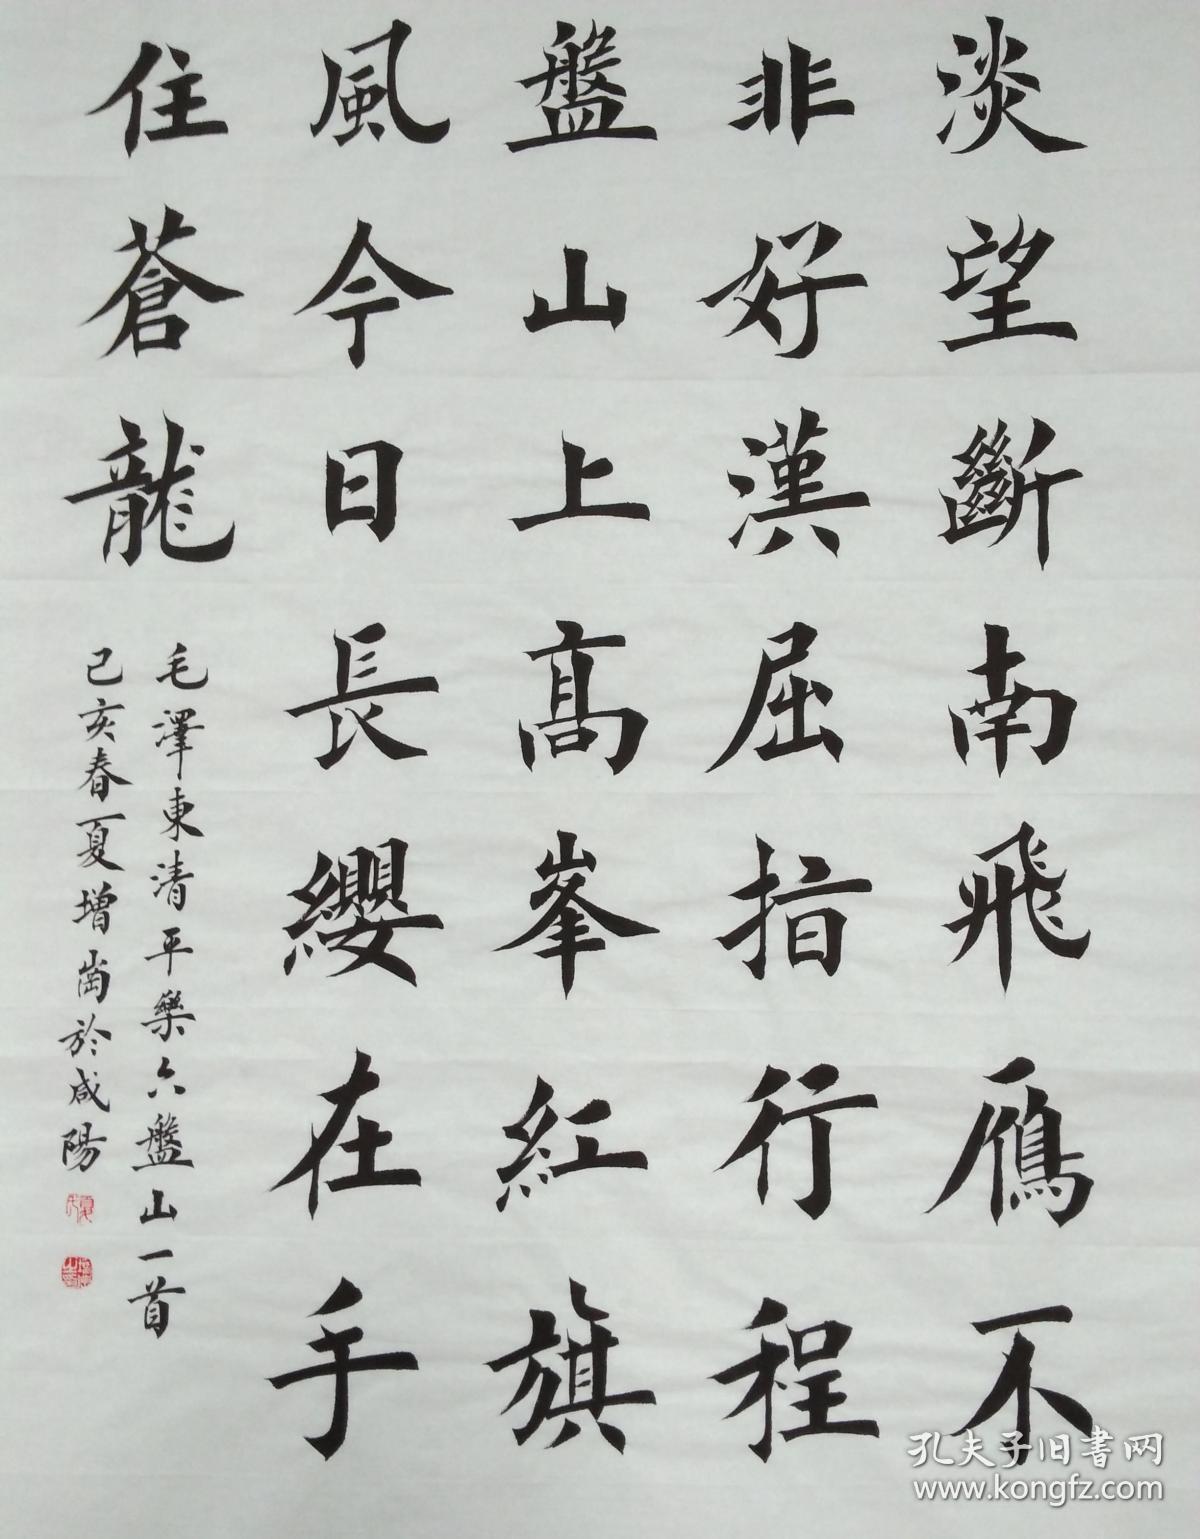 淡望斷南飛鴈不
非好漢屈指行程
盤山上高峯紅旗
風今日長纓在手
住蒼龍
毛澤東清平樂六盤山一首
己亥春夏增崗於咸陽
孔夫子旧书网
www.kongfz.com